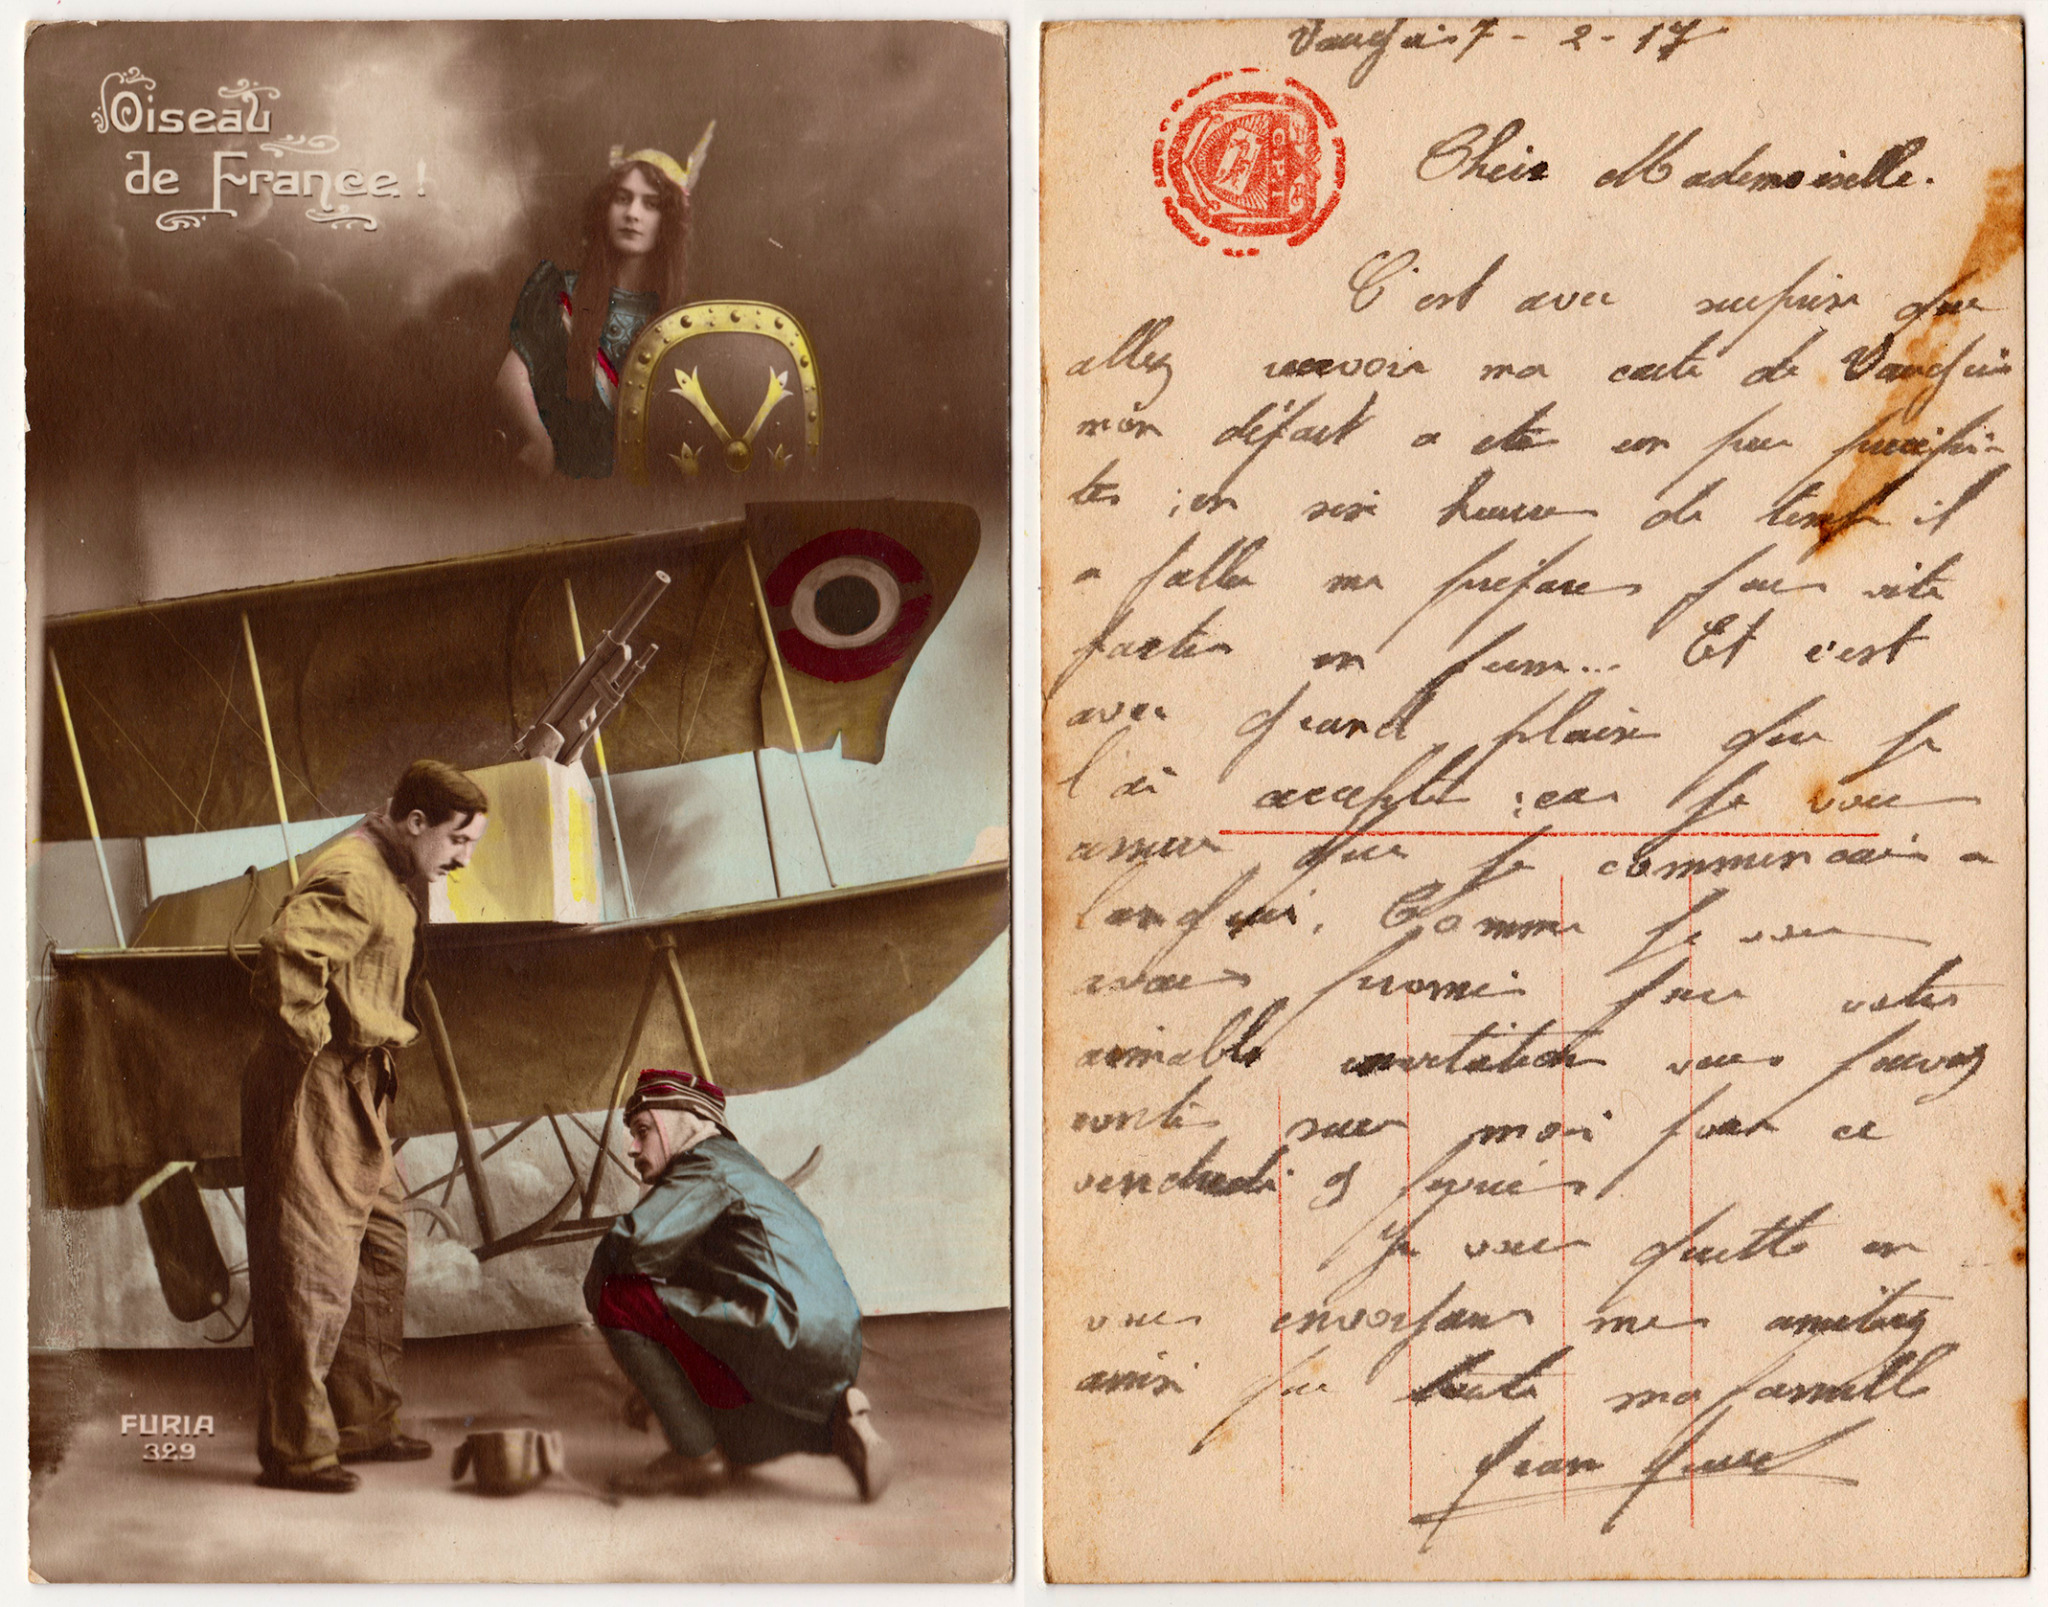 Oiseau
de France !
FURIA
329
7 - 2 - 17
Cheir Mademoiselle.
C'est avec surprise que
allez recevoir ma carte de
mon départ a été un peu précipi-
tes ; en six heures de temps il
a fallu me prépares pour vite
partir en perm... Et c'est
avec grand plaisir que je
l'ai accepté ; car je vous
assure que je commencais a
languir. Comme je vous
avais promis pour votre
aimable invitation vous pouvez
contés sur moi pour ce
vendredi 9
Je vous quitte en
vous envoyant mes amitiés
ainsi que toute ma famille
Jean